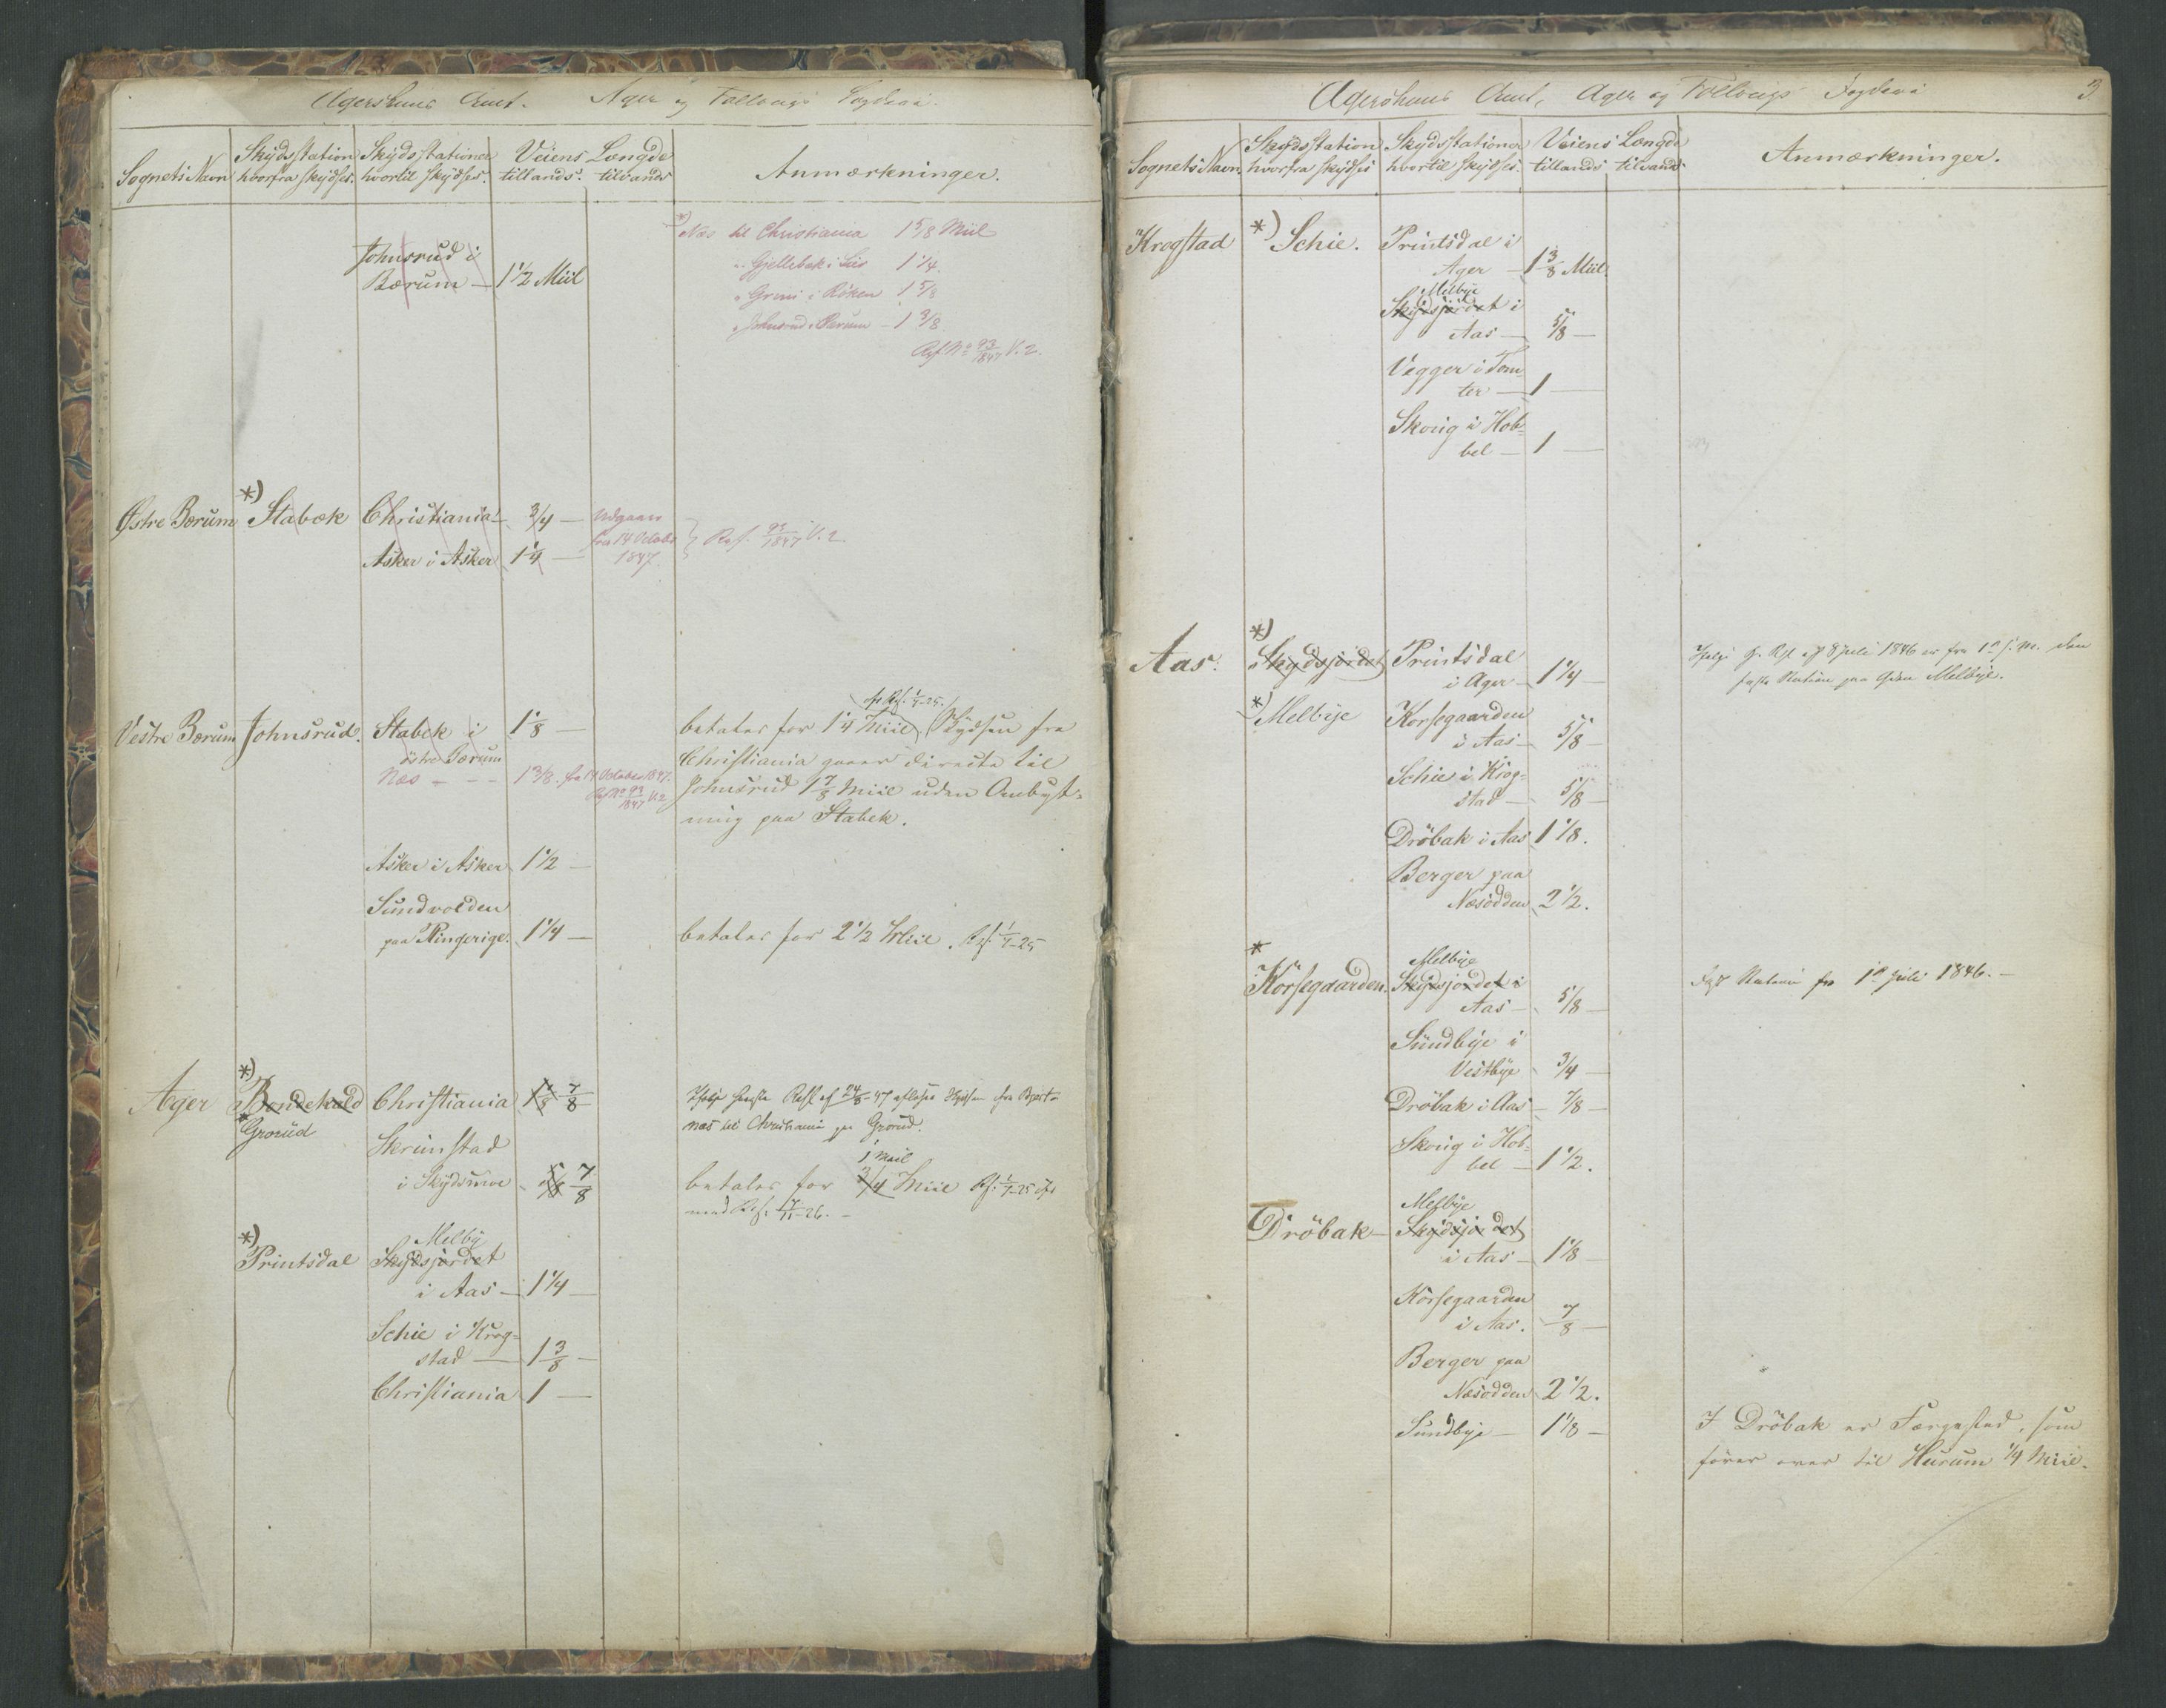 Agershuus Amt. Ager og Follougs Fogderi.
Sognets Navn
Skydsstation hvorfra skydses.
Skydsstationer hvortil skydses.
Veiens Længde
tillands. tilvands
Anmærkninger.
Johnsrud i
Bærum — 1 1/2 Miil
*) Næs til Christiania 1 5/8 Miil
" Gjellebæk i Lier 1 1/4
" Grini i Röken 1 5/8
" Johnsrud i Bærum — 1 3/8
Ref No 93/1847 V. 2.
Østre Bærum *) Stabæk Christiania — 3/4 — Udgaaer
fra 14 October
1847.
Ref. 93/1847 V. 2
Asker i Asker 1 1/4 —
Vestre Bærum Johnsrud. Stabek i 1 1/8 —
östre Bærum
Næs — — — 1 3/8. fra 14 October 1847.
Ref No 93/1847 V. 2
betales for 1 1/4 Miil Skydsen fra
Christiania gaaer directe til
Johnsrud 1 7/8 Miil uden Ombyt-
ning paa Stabek.
Asker i Asker 1 1/2 —
Sundvolden
paa Ringerige. 1 1/4 — betales for 2 1/2 Miil. Ref. 1/7-25
Ager *) Bondekald Christiania 1 1/8 7/8
* Grorud
Ifölge Refl af 24/8 47 aflöses Skydsen fra
næs til Christiania paa Grorud.
Skrimstad
i Skydsmoe 5/8 7/8
1 Miil
betales for 3/4 Miil Rf. 1/7-25
med Ref.
*) Printsdal Melby
Skydsjordet
i Aas — 1 1/4 —
Schie i Krog-
stad — 1 3/8 —
Christiania 1 —
Agershuus Amt, Ager og Follougs Fogderi
3.
Sognets Navn.
Skydsstation hvorfra skydses
Skydsstationer hvortil skydses.
Veiens Længde
tillands tilvands
Anmærkninger.
Krogstad *) Schie. Printsdal i
Ager — 1 3/8 Miil.
Melbye
Skydsjordet i
Aas — 5/8 —
Vegger i Tom-
ter — 1 —
Skouig i Hob-
bel — 1 —
Aas. *) Skydsjordet Printsdal
i Ager — 1 1/4 —
Ifölge Ref af 8 Juli 1846 er fra 1o den
faste Station paa Melbye.
*) Melbye Korsegaarden
i Aas — 5/8 —
Schie i Krog-
stad — 5/8 —
Dröbak i Aas 1 1/8.
Berger paa
Næsodden 2 1/2.
* Korsegaarden. Melbye
Skydsjordet i
Aas — 5/8 —
Fast Station fra 1o Juli 1846. —
Sundbye i
Vestbye 3/4 —
Dröbak i Aas — 7/8 —
Skouig i Hob-
bel — 1 1/2.
Dröbak — Melbye
Skydsjordet
i Aas — 1 1/8 —
Korsegaarden
i Aas. 7/8 —
Berger paa
Næsodden 2 1/2.
Sundbye — 1 1/8 —
I Dröbak er Færgested, som
förer over til Hurum 1/4 Miil.